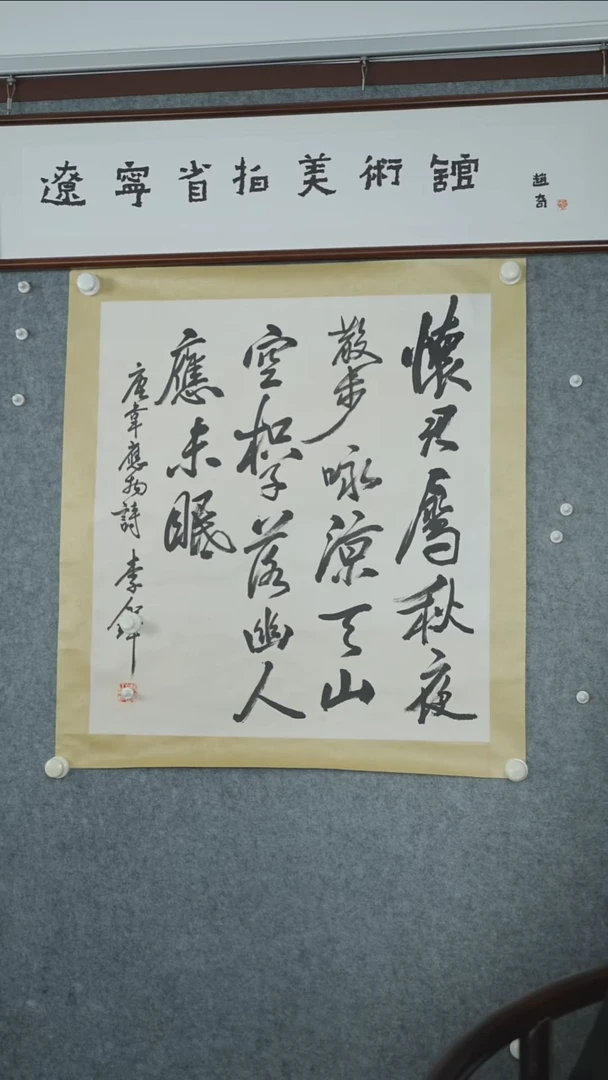 遼寧省拍美術舘
趙奇
懷君屬秋夜
散步咏涼天山
空松子落幽人
應未眠
唐韋應物詩 李